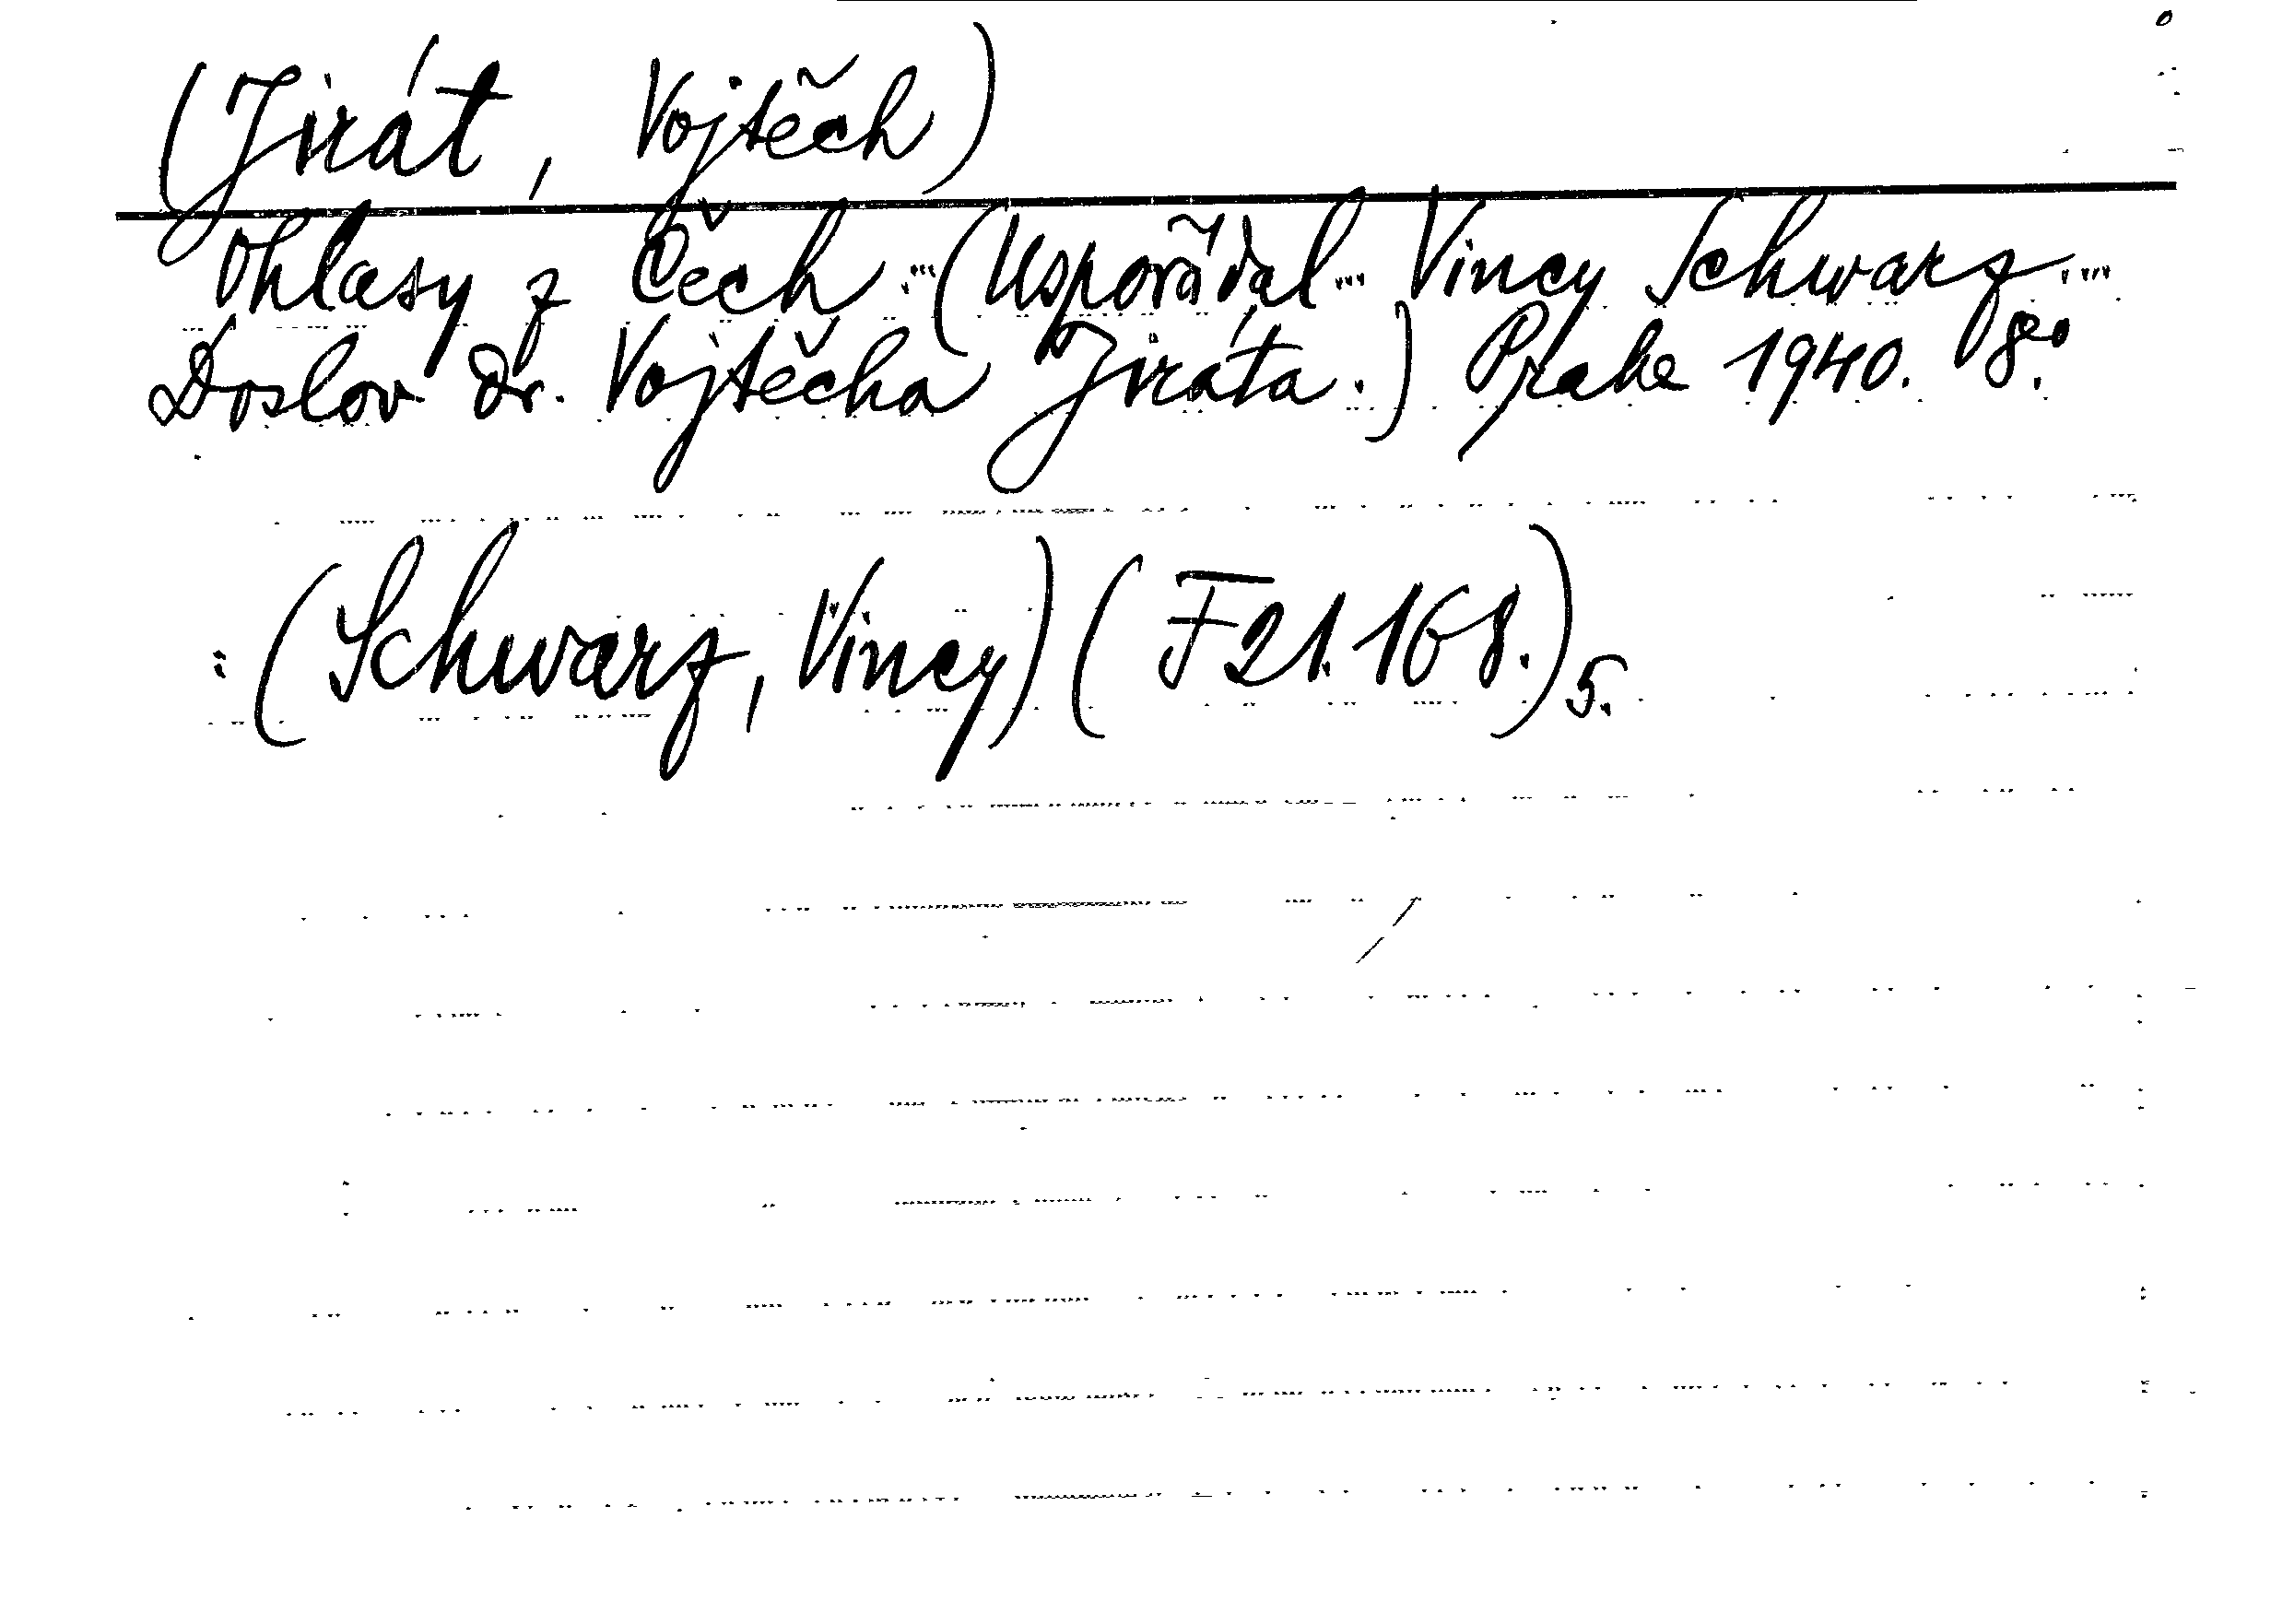 (Jirát, Vojtěch)
Ohlasy z Čech ... (Uspořádal ... Vincy Schwarz ...
Doslov Dr. Vojtěcha Jiráta.) Praha 1940. 8°.
(Schwarz, Vincy) (F 21.168.)5.